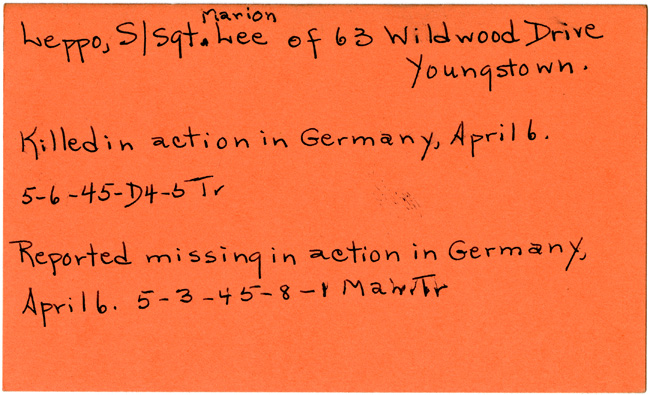 Marion
Leppo, S/Sgt. Lee of 63 Wildwood Drive
Youngstown.
Killed in action in Germany, April 6.
5-6-45-D4-5 Tr
Reported missing in action in Germany,
April 6. 5-3-45-8-1 Tr